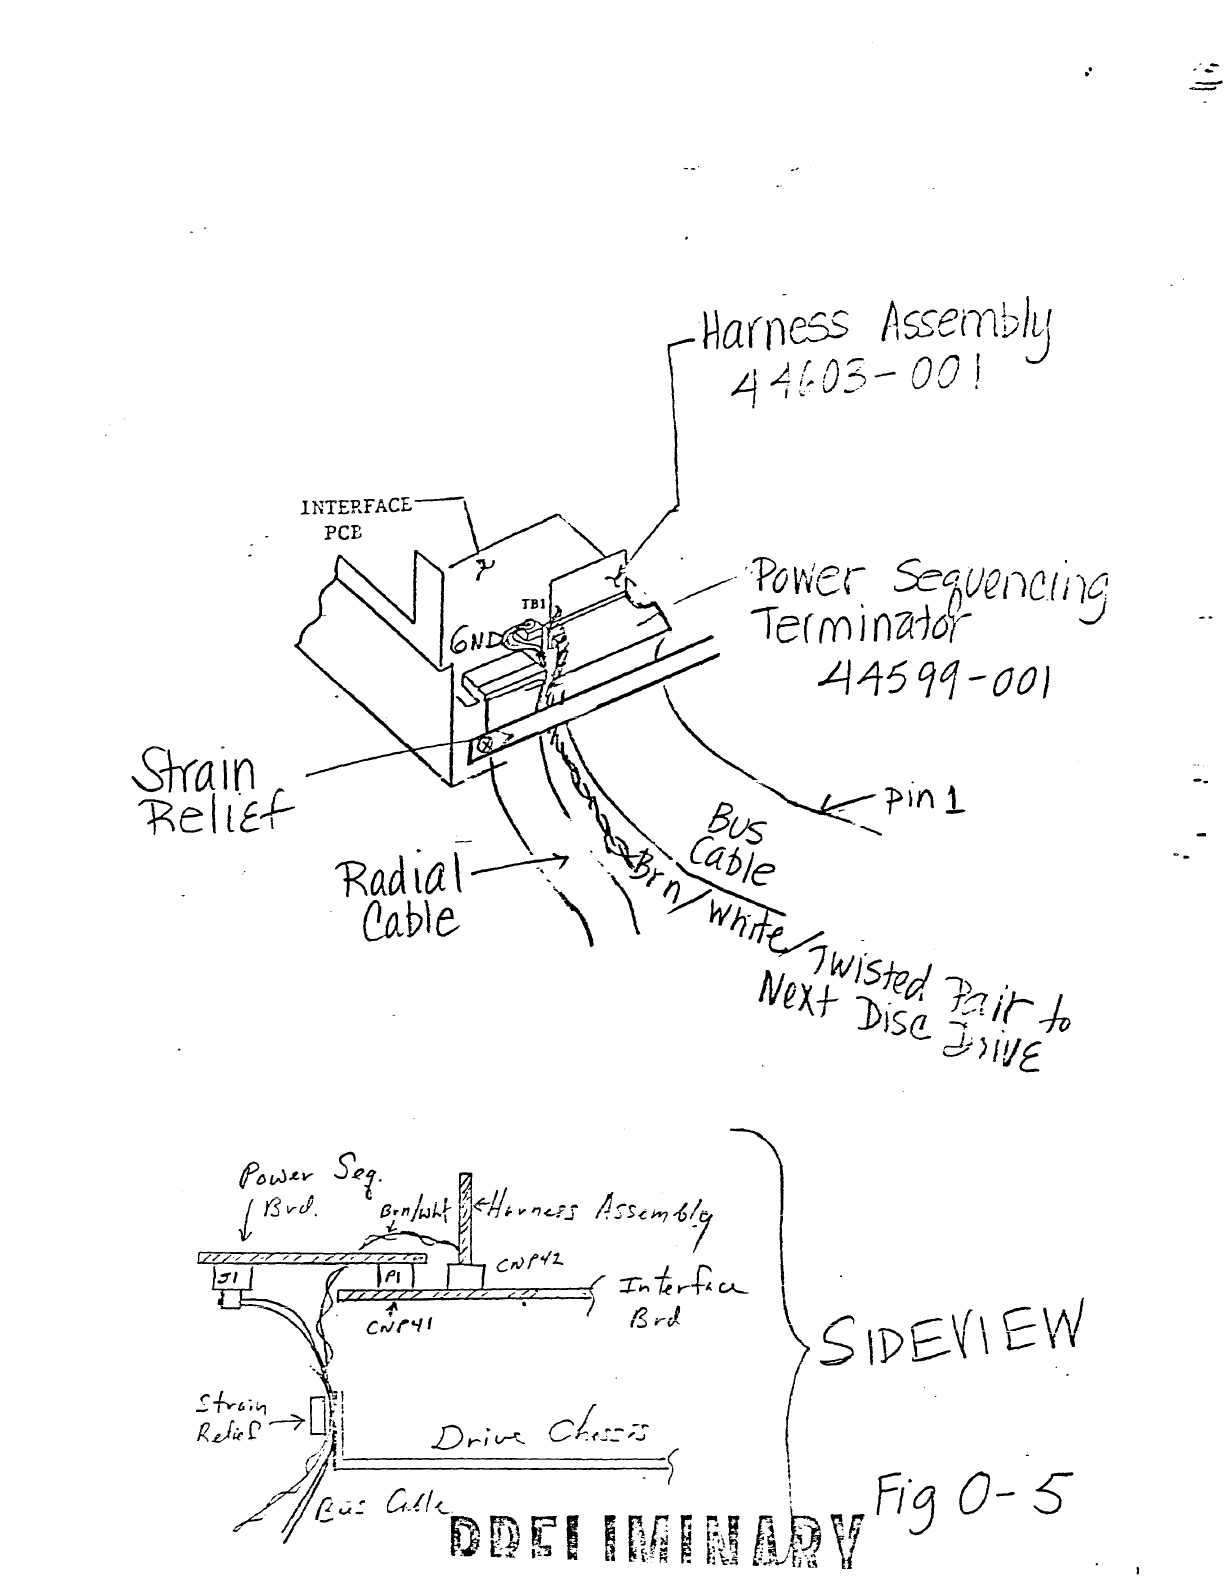 Harness Assembly
44603-001
INTERFACE
PCB
Power Sequencing
Terminator
44599-001
TB1
GND
Strain
Relief
Pin 1
Bus
Cable
Radial
Cable
Brn/White/Twisted Pair to
Next Disc Drive
Power Seq.
Brd.
Brn/Wht
Harness Assembly
CNP42
J1
P1
Interface
Brd
CNP41
SIDEVIEW
Strain
Relief
Drive Chassis
Bus Cable
Fig 0-5
PRELIMINARY